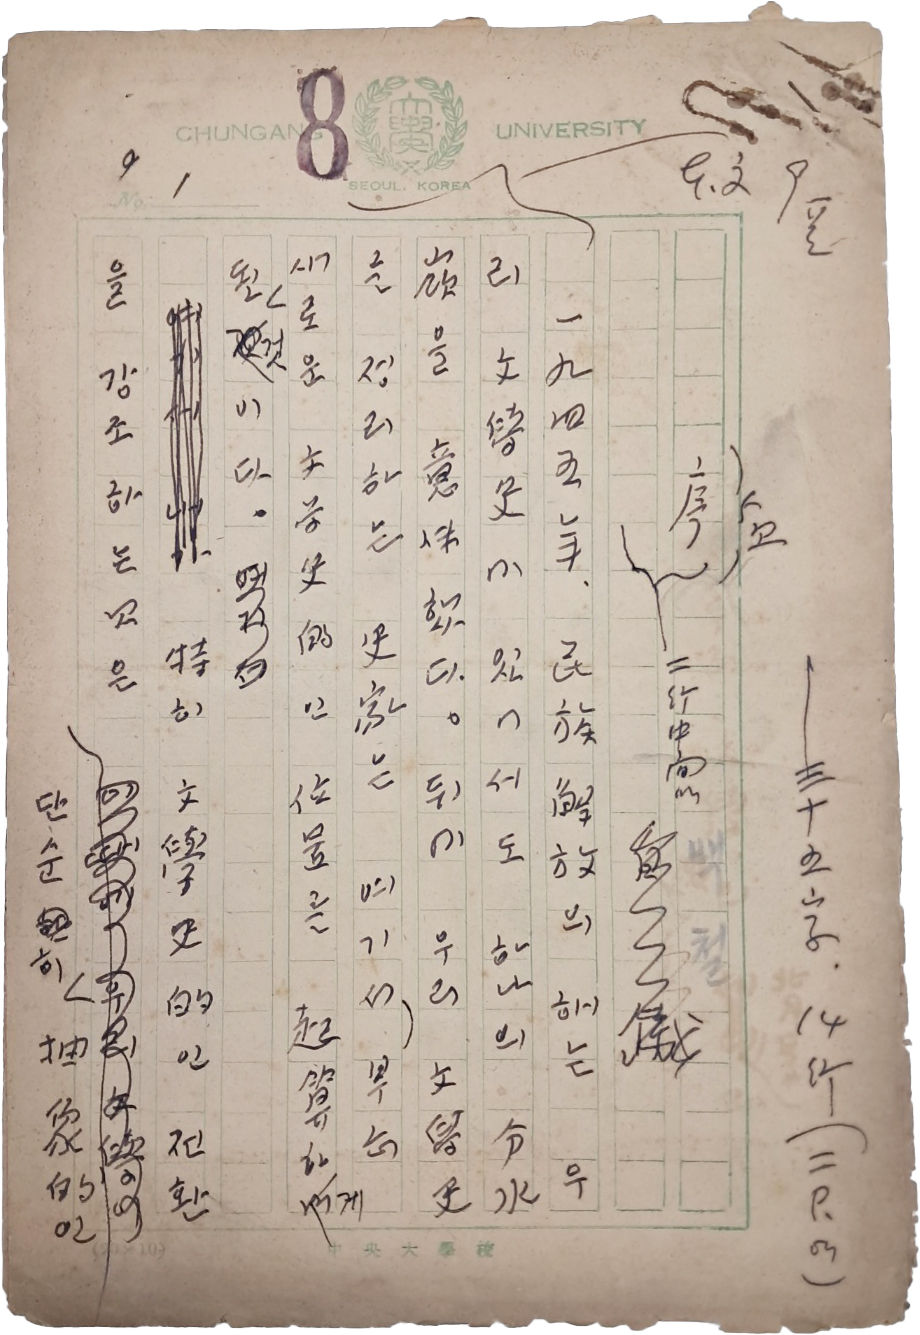 8
CHUNGANG UNIVERSITY
SEOUL, KOREA
No.
1
三十五字. 14行
序
二行中高
백철
一九四五年、民族解放의 해는 우
리 文學史에 있어서도 하나의 分水
嶺을 意味했다。뒤에 우리 文學史
를 정리하는 史家는 여기서 부터
새로운 文学史的인 位置를 起算하게
된 것이다.
特히 文學史的인 전환
을 강조하는 것은
단순히 抽象的인
(20×10)
中央大學校